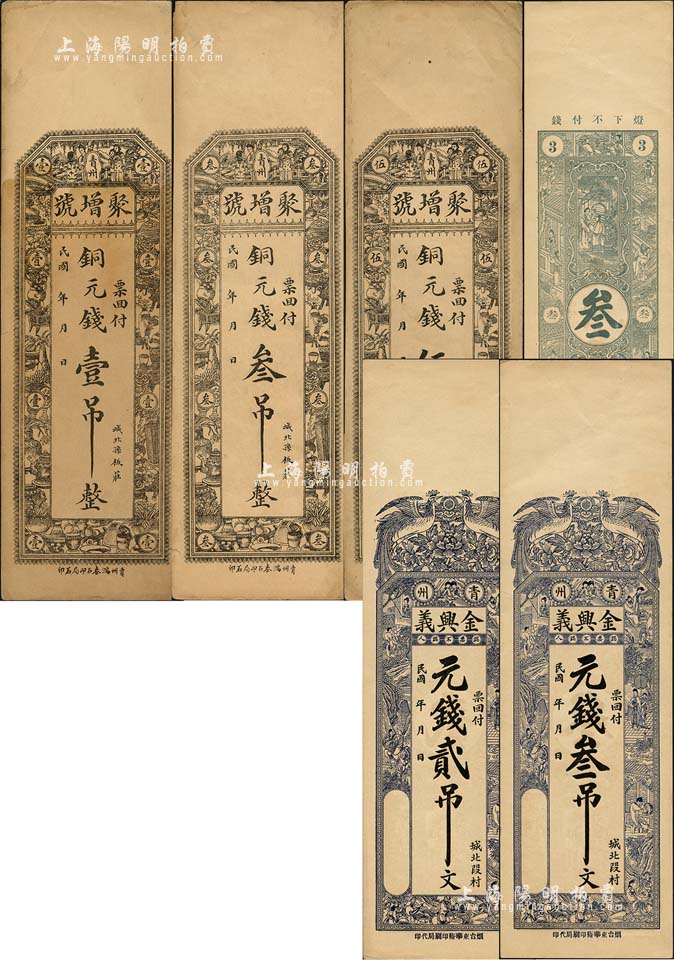 上海陽明拍賣
www.yangmingauction.com
青州
壹
壹
聚增號
票回付
銅元錢壹吊整
民國 年 月 日
城北孫板莊
壹
壹
壹
壹
壹
壹
青州鴻泰石印局石印
青州
叁
叁
聚增號
票回付
銅元錢叁吊整
民國 年 月 日
城北孫板莊
叁
叁
叁
叁
叁
叁
青州鴻泰石印局石印
青州
伍
伍
聚增號
票回付
銅元錢
民國 年 月 日
伍
燈下不付錢
3
3
叁
叁
叁
青州
金興義
認票不認人
票回付
元錢貳吊文
民國 年 月 日
城北段村
烟台東華裕印刷局代印
青州
金興義
認票不認人
票回付
元錢叁吊文
民國 年 月 日
城北段村
烟台東華裕印刷局代印
上海陽明拍賣
www.yangmingauction.com
上海陽明拍賣
www.yangmingauction.com